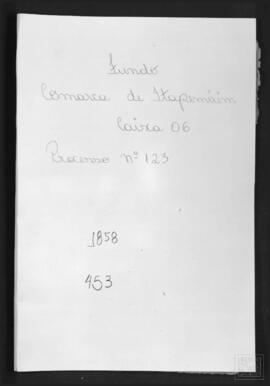 Fundo
Comarca de Itapemirim
Caixa 06
Processo nº 123
1858
453